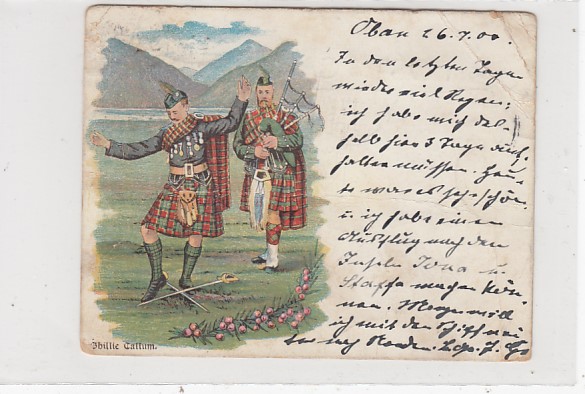 Oban 26.7.00.
In den letzten Tagen
wieder viel Regen;
ich habe mich des-
halb hier 3 Tage auf-
halten müssen. Heu-
te war es sehr schön
u. ich habe einen
Ausflug nach den
Inseln Iona u.
Staffa machen kön-
nen. Morgen will
ich mit dem Schiff wei-
ter nach Norden.
Ghillie Callum.